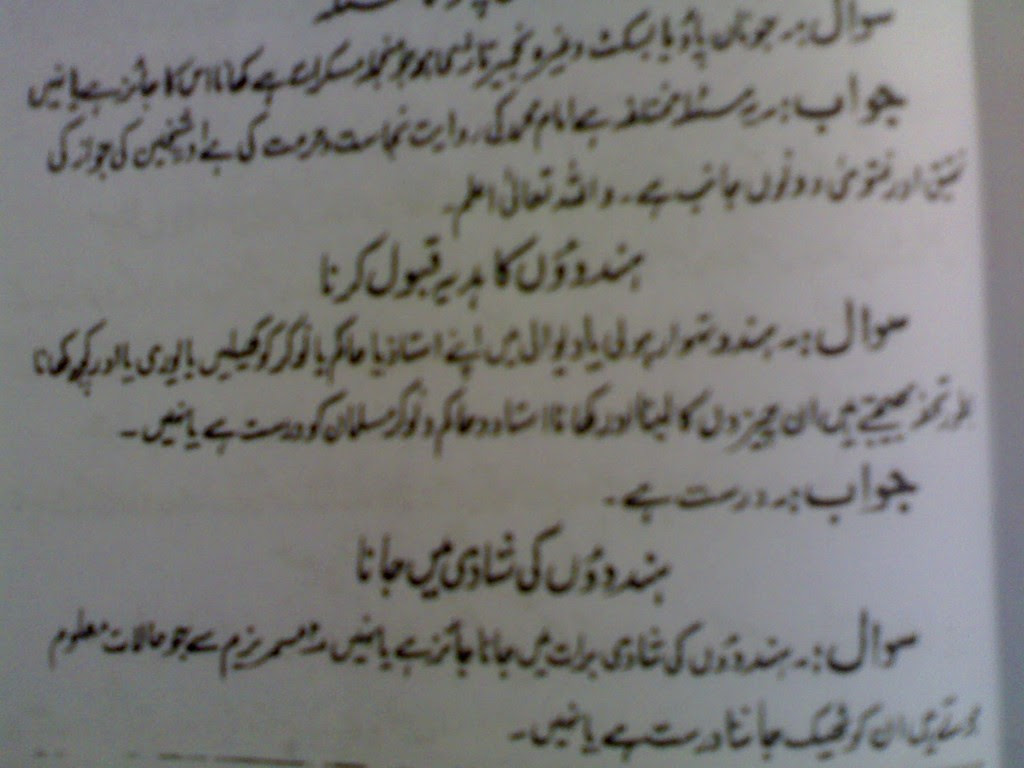 سوال:۔ جو نان پاؤ یا بسکٹ وغیرہ بخمیر تاڑسی ہو جو منجملہ مسکرات ہے کھانا اس کا جائز ہے یا نہیں
جواب:۔ یہ مسئلہ مختلفہ ہے امام محمد کی روایت نجاست و حرمت کی ہے اور شیخین کی جواز کی
اور فتویٰ دونوں جانب ہے۔ واللہ تعالیٰ اعلم۔
ہندوؤں کا ہدیہ قبول کرنا
سوال:۔ ہندو تہوار ہولی یا دیوالی میں اپنے استاذ یا حاکم یا نوکر کو کھیلیں یا پوری یا اور کچھ کھانا
بطور تحفہ بھیجتے ہیں ان چیزوں کا لینا اور کھانا استاد و حاکم و نوکر مسلمان کو درست ہے یا نہیں۔
جواب:۔ درست ہے۔
ہندوؤں کی شادی میں جانا
سوال:۔ ہندوؤں کی شادی برات میں جانا جائز ہے یا نہیں مسمریزم سے جو حالات معلوم
ہوتے ہیں ان کو ٹھیک جاننا درست ہے یا نہیں۔